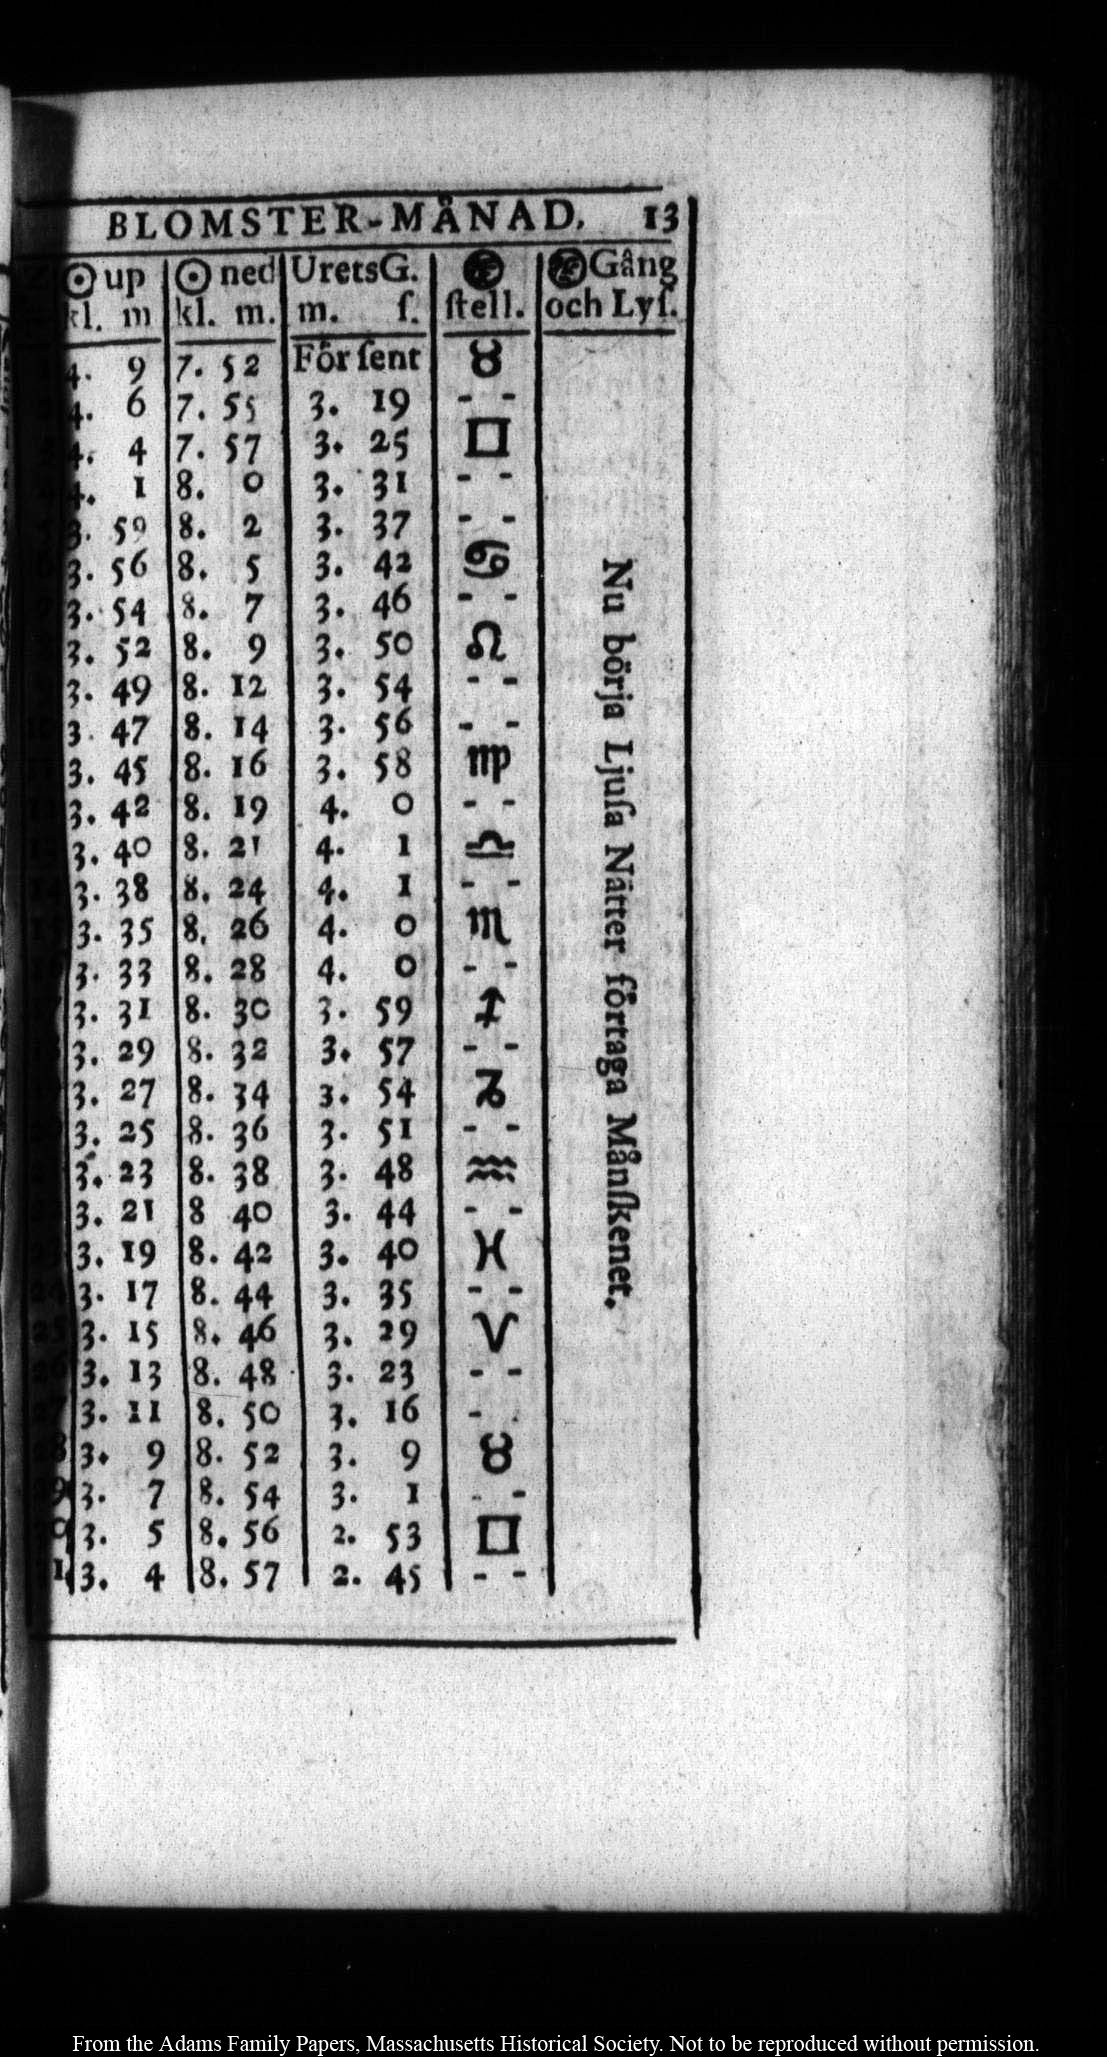 BLOMSTER-MÅNAD. 13
☉ up ☉ ned UretsG. Gång
kl. m kl. m. m. ſ. ſtell. och Lyſ.
4. 9 7. 52 Förſent ♉
4. 6 7. 55 3. 19 - -
4. 4 7. 57 3. 25 □
4. 1 8. 0 3. 31 - -
3. 59 8. 2 3. 37 - -
3. 56 8. 5 3. 42 ♋
3. 54 8. 7 3. 46 - -
3. 52 8. 9 3. 50 ♌
3. 49 8. 12 3. 54 - -
3. 47 8. 14 3. 56 - -
3. 45 8. 16 3. 58 ♍
3. 42 8. 19 4. 0 - -
3. 40 8. 21 4. 1 ♎
14 3. 38 8. 24 4. 1 - -
3. 35 8. 26 4. 0 ♏
3. 33 8. 28 4. 0 - -
3. 31 8. 30 3. 59 ♐
3. 29 8. 32 3. 57 - -
3. 27 8. 34 3. 54 ♑
3. 25 8. 36 3. 51 - -
3. 23 8. 38 3. 48 ♒
3. 21 8 40 3. 44 - -
3. 19 8. 42 3. 40 ♓
24 3. 17 8. 44 3. 35 - -
25 3. 15 8. 46 3. 29 ♈
3. 13 8. 48 3. 23 - -
3. 11 8. 50 3. 16 -
3. 9 8. 52 3. 9 ♉
3. 7 8. 54 3. 1 - -
3. 5 8. 56 2. 53 □
3. 4 8. 57 2. 45 - -
Nu börja Ljuſa Nätter förtaga Månſkenet.
From the Adams Family Papers, Massachusetts Historical Society. Not to be reproduced without permission.